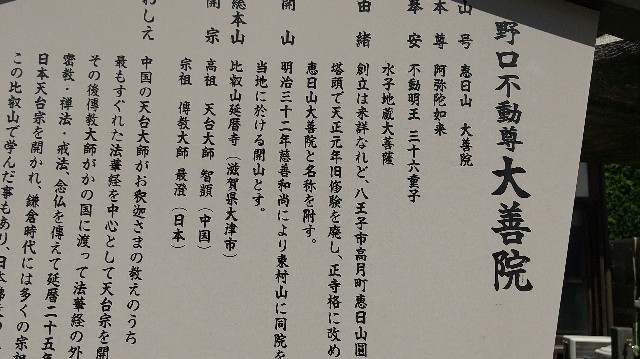 野口不動尊 大善院
山号 恵日山 大善院
本尊 阿弥陀如来
奉安 不動明王 三十六童子
水子地蔵大菩薩
由緒 創立は未詳なれど、八王子市高月町恵日山圓
塔頭で天正元年旧修験を廃し、正寺格に改め
恵日山大善院と名称を附す。
開山 明治三十二年慈善和尚により東村山に同院を
当地に於ける開山とす。
総本山 比叡山延暦寺（滋賀県大津市）
開宗 高祖 天台大師 智顗（中国）
宗祖 傳教大師 最澄（日本）
おしえ 中国の天台大師がお釈迦さまの教えのうち
最もすぐれた法華経を中心として天台宗を開
その後傳教大師がかの国に渡って法華経の外
密教・禅法・戒法、念仏を傳えて延暦二十五年
日本天台宗を開かれ、鎌倉時代には多くの宗祖
この比叡山で学んだ事もあり、日本